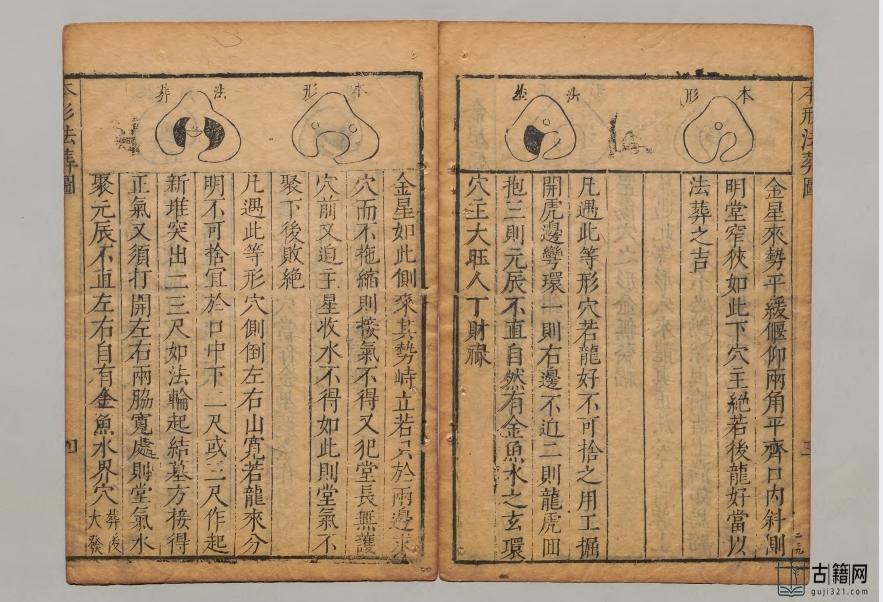 本形法葬圖
三
本形
法葬
金星來勢平緩偃仰兩角平齊口内斜測
明堂窄狹如此下穴主絶若後龍好當以
法葬之吉
凡遇此等形穴若龍好不可捨之用工掘
開虎邊彎環一則右邊不迫二則龍虎回
抱三則元辰不直自然有金魚水之玄環
穴主大旺人丁財祿
本形
法葬
金星如此側來其勢峙立若只於兩邊求
穴而不拖縮則接氣不得又犯堂長無護
穴前又迫主星收水不得如此則堂氣不
聚下後敗絶
凡遇此等形穴側倒左右山寛若龍來分
明不可捨宜於口中下二尺或三尺作起
新堆突出二三尺如法輪起結墓方接得
正氣又須打開左右兩脇寛處則堂氣水
聚元辰不直左右自有金魚水界穴葬後大發
本形法葬圖
古籍网
guji321.com